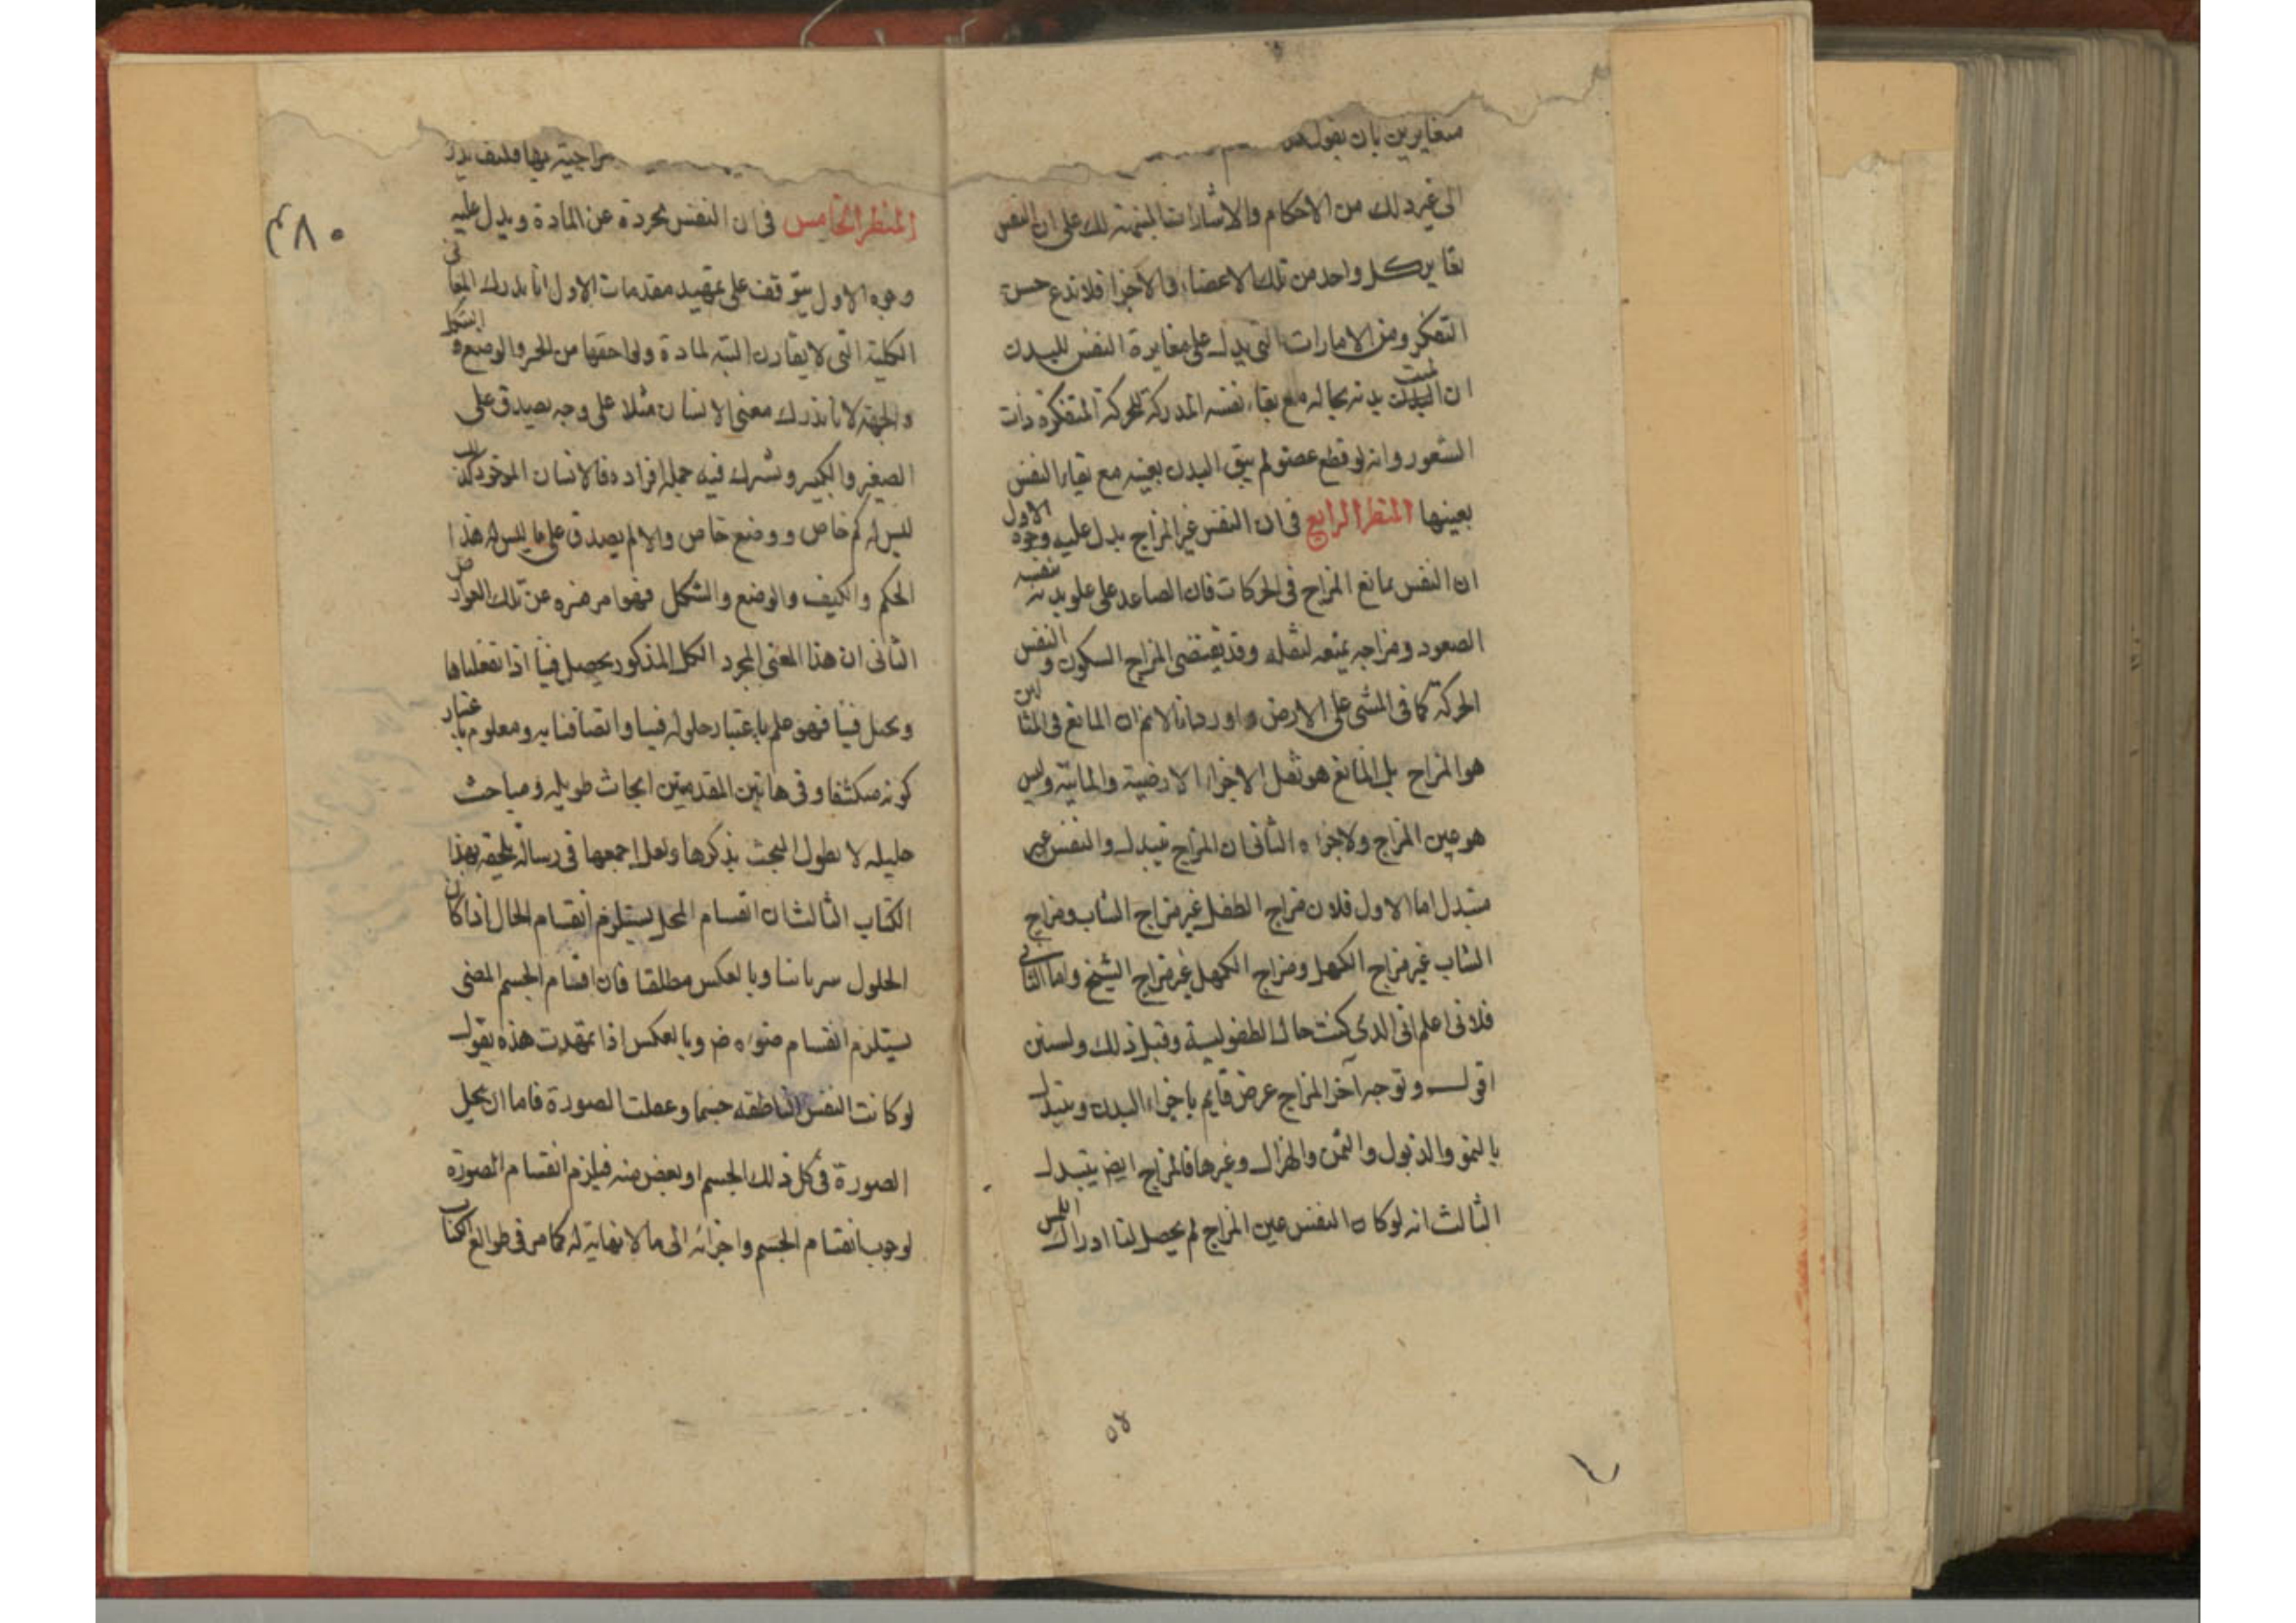 متغايرين بان يقول
الى غير ذلك من الاحكام والاشارات المنبهة لك على ان النفس
تغاير كل واحد من تلك الاعضاء والاجزا فلا تدع حسن
التفكر ومن الامارات التى يدل على مغايرة النفس للبدن
ان البدن بدنه بحاله مع بقاء نفسه المدركة المتفكرة ذات
الشعور وانه لو قطع عضو لم يبق البدن بعينه مع بقاء النفس
بعينها المنظر الرابع فى ان النفس غير المزاج يدل عليه وجوه الاول
ان النفس يمانع المزاج فى الحركات فان الصاعد على علو بدنه نفسه
الصعود ومزاجه يمنعه لثقله وقد يقتضى المزاج السكون والنفس
الحركة كما فى المشى على الارض واورد بانا لانم ان المانع فى المثالين
هو المزاج بل المانع هو ثقل الاجزاء الارضية والمائية وليس
هو عين المزاج ولاجزاه الثانى ان المزاج يتبدل والنفس غير
متبدل اما الاول فلان مزاج الطفل غير مزاج الشاب ومزاج
الشاب غير مزاج الكهل ومزاج الكهل غير مزاج الشيخ واما الثانى
فلانى اعلم انى الذى كنت حال الطفولية وقبل ذلك ولسنين
اقول وتوجه آخر المزاج عرض قايم باجزاء البدن ويتبدل
بالنمو والذبول والسمن والهزال وغيرها فالمزاج ايضا يتبدل
الثالث انه لو كان النفس عين المزاج لم يحصل لنا ادراك اللمس
٥٤
مزاجية بها فكيف يدرك
المنظر الخامس فى ان النفس مجردة عن المادة ويدل عليه
وجوه الاول يتوقف على تمهيد مقدمات الاول انا ندرك المعانى
الكلية التى لا يقارن البتة لمادة ولواحقها من الحيز والوضع والشكل
والجهة لانا ندرك معنى الانسان مثلا على وجه يصدق على
الصغير والكبير وتشرك فيه جملة افراده فالانسان الموجود كذلك
ليس له كم خاص ووضع خاص والا لم يصدق على ما ليس له هذا
الحكم والكيف والوضع والشكل فهو امر منزه عن تلك العوارض
الثانى ان هذا المعنى المجرد الكلى المذكور يحصل فينا اذا تعقلناها
ويحل فينا فهو علم باعتبار حلوله فينا واتصافنا به ومعلوم باعتبار
كونه منكشفا وفى هاتين المقدمتين ابحاث طويلة ومباحث
جليلة لا نطول البحث بذكرها ولعل اجمعها فى رسالة ملحقة بهذا
الكتاب الثالث ان انقسام المحل يستلزم انقسام الحال اذا كان
الحلول سريانيا وبالعكس مطلقا فان اقسام الجسم المضى
يستلزم انقسام ضوءه وبالعكس اذا تمهدت هذه يقول
لو كانت النفس الناطقة جسما وعقلت الصورة فاما ان يحل
الصورة فى كل ذلك الجسم او بعض منه فيلزم انقسام الصورة
لوجوب انقسام الجسم واجزائه الى ما لا نهاية له كما مر فى طوالع الكتاب